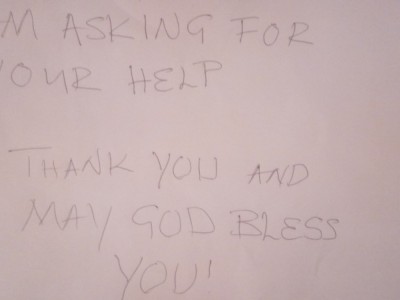 M ASKING FOR
OUR HELP
THANK YOU AND
MAY GOD BLESS
YOU!